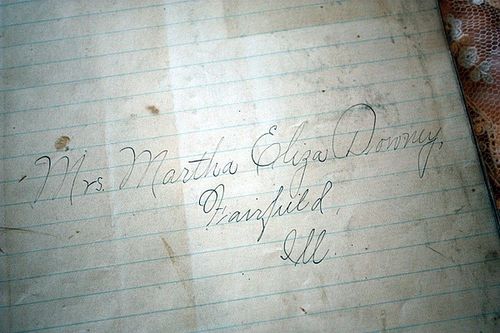 Mrs. Martha Eliza Downey,
Fairfield,
Ill.